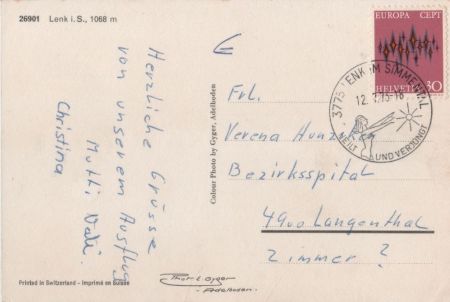 26901 Lenk i. S., 1068 m
Herzliche Grüsse
von unserem Ausflug
Mutti Vati.
Christina
Colour Photo by Gyger, Adelboden
EUROPA CEPT
HELVETIA 30
3775 LENK IM SIMMENTAL
12. 7. 73-18
HEILT UND VERJÜNGT
Frl.
Verena Hunziker
Bezirksspital
4900 Langenthal
Zimmer ?
Printed in Switzerland - Imprimé en Suisse
Gyger
Adelboden.